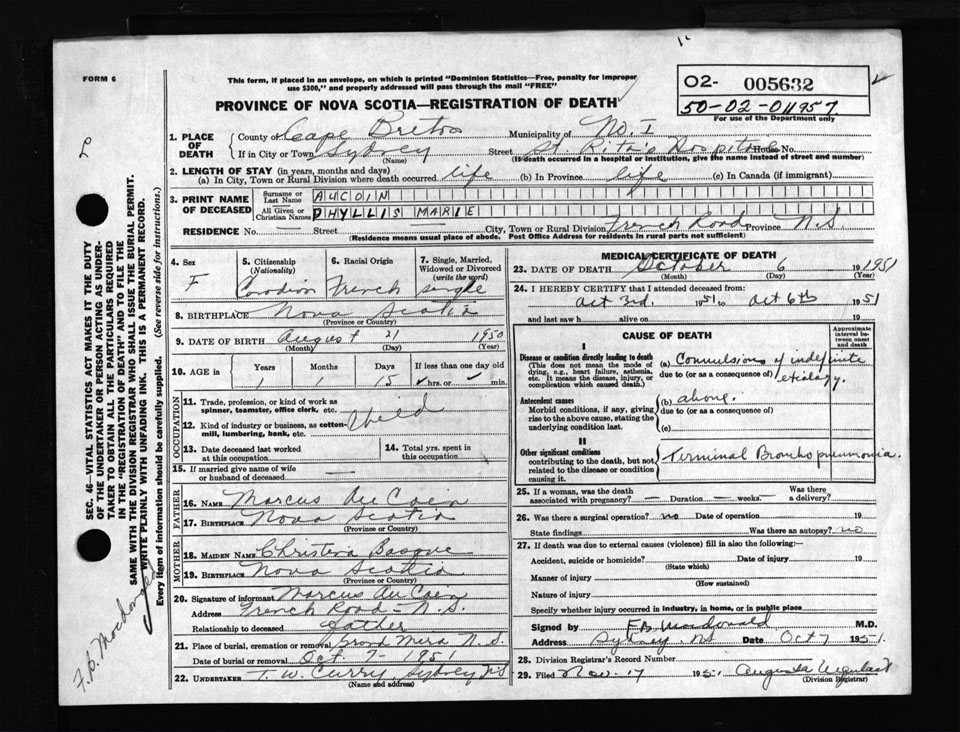 FORM 6
This form, if placed in an envelope, on which is printed "Dominion Statistics—Free, penalty for improper
use $300," and properly addressed will pass through the mail "FREE"
PROVINCE OF NOVA SCOTIA—REGISTRATION OF DEATH
02- 005632
50-02-011957
For use of the Department only
1. PLACE OF DEATH
County of Cape Breton Municipality of No. I
If in City or Town Sydney Street St. Rita's Hospital House No.
(Name) (If death occurred in a hospital or institution, give the name instead of street and number)
2. LENGTH OF STAY (in years, months and days)
(a) In City, Town or Rural Division where death occurred life (b) In Province life (c) In Canada (if immigrant)
3. PRINT NAME OF DECEASED
Surname or Last Name AUCOIN
All Given or Christian Names PHYLLIS MARIE
RESIDENCE No. — Street — City, Town or Rural Division French Road Province N.S.
(Residence means usual place of abode. Post Office Address for residents in rural parts not sufficient)
4. Sex F
5. Citizenship (Nationality) Canadian
6. Racial Origin French
7. Single, Married, Widowed or Divorced (write the word) single
8. BIRTHPLACE Nova Scotia
(Province or Country)
9. DATE OF BIRTH August 21 1950
(Month) (Day) (Year)
10. AGE in Years Months Days If less than one day old
1 1 15 hrs. or min.
OCCUPATION
11. Trade, profession, or kind of work as
spinner, teamster, office clerk, etc.
12. Kind of industry or business, as cotton-
mill, lumbering, bank, etc.
Child
13. Date deceased last worked
at this occupation
14. Total yrs. spent in
this occupation
15. If married give name of wife
or husband of deceased —
FATHER
16. NAME Marcus Au Coin
17. BIRTHPLACE Nova Scotia
(Province or Country)
MOTHER
18. MAIDEN NAME Christena Basque
19. BIRTHPLACE Nova Scotia
(Province or Country)
20. Signature of informant Marcus Au Coin
Address French Road - N.S.
Relationship to deceased father
21. Place of burial, cremation or removal Grand Mira N.S.
Date of burial or removal Oct. 7 - 1951
22. UNDERTAKER T. W. Curry, Sydney N.S
(Name and address)
MEDICAL CERTIFICATE OF DEATH
23. DATE OF DEATH October 6 19 1951
(Month) (Day)
24. I HEREBY CERTIFY that I attended deceased from:
Oct 3rd. 1951 to Oct 6th 1951
and last saw h alive on 19
CAUSE OF DEATH
Approximate interval between onset and death
I
Disease or condition directly leading to death
(This does not mean the mode of
dying, e.g., heart failure, asthenia,
etc. It means the disease, injury, or
complication which caused death.)
(a) Convulsions of indefinite
due to (or as a consequence of) etiology.
Antecedent causes
Morbid conditions, if any, giving
rise to the above cause, stating the
underlying condition last.
(b) above.
due to (or as a consequence of)
(c)
II
Other significant conditions
contributing to the death, but not
related to the disease or condition
causing it.
Terminal Broncho pneumonia.
25. If a woman, was the death
associated with pregnancy? — Duration — weeks. Was there
a delivery?
26. Was there a surgical operation? no Date of operation 19
State findings Was there an autopsy? no
27. If death was due to external causes (violence) fill in also the following:—
Accident, suicide or homicide? Date of injury 19
(State which)
Manner of injury
(How sustained)
Nature of injury
Specify whether injury occurred in industry, in home, or in public place
Signed by F.A. Macdonald M.D.
Address Sydney, NS Date Oct 7 1951.
28. Division Registrar's Record Number
29. Filed Nov. 17 1951
(Division Registrar)
SEC. 46—VITAL STATISTICS ACT MAKES IT THE DUTY
OF THE UNDERTAKER OR PERSON ACTING AS UNDER-
TAKER TO OBTAIN ALL THE PARTICULARS REQUIRED
IN THE "REGISTRATION OF DEATH" AND TO FILE THE
SAME WITH THE DIVISION REGISTRAR WHO SHALL ISSUE THE BURIAL PERMIT.
WRITE PLAINLY WITH UNFADING INK. THIS IS A PERMANENT RECORD.
Every item of information should be carefully supplied. (See reverse side for instructions.)